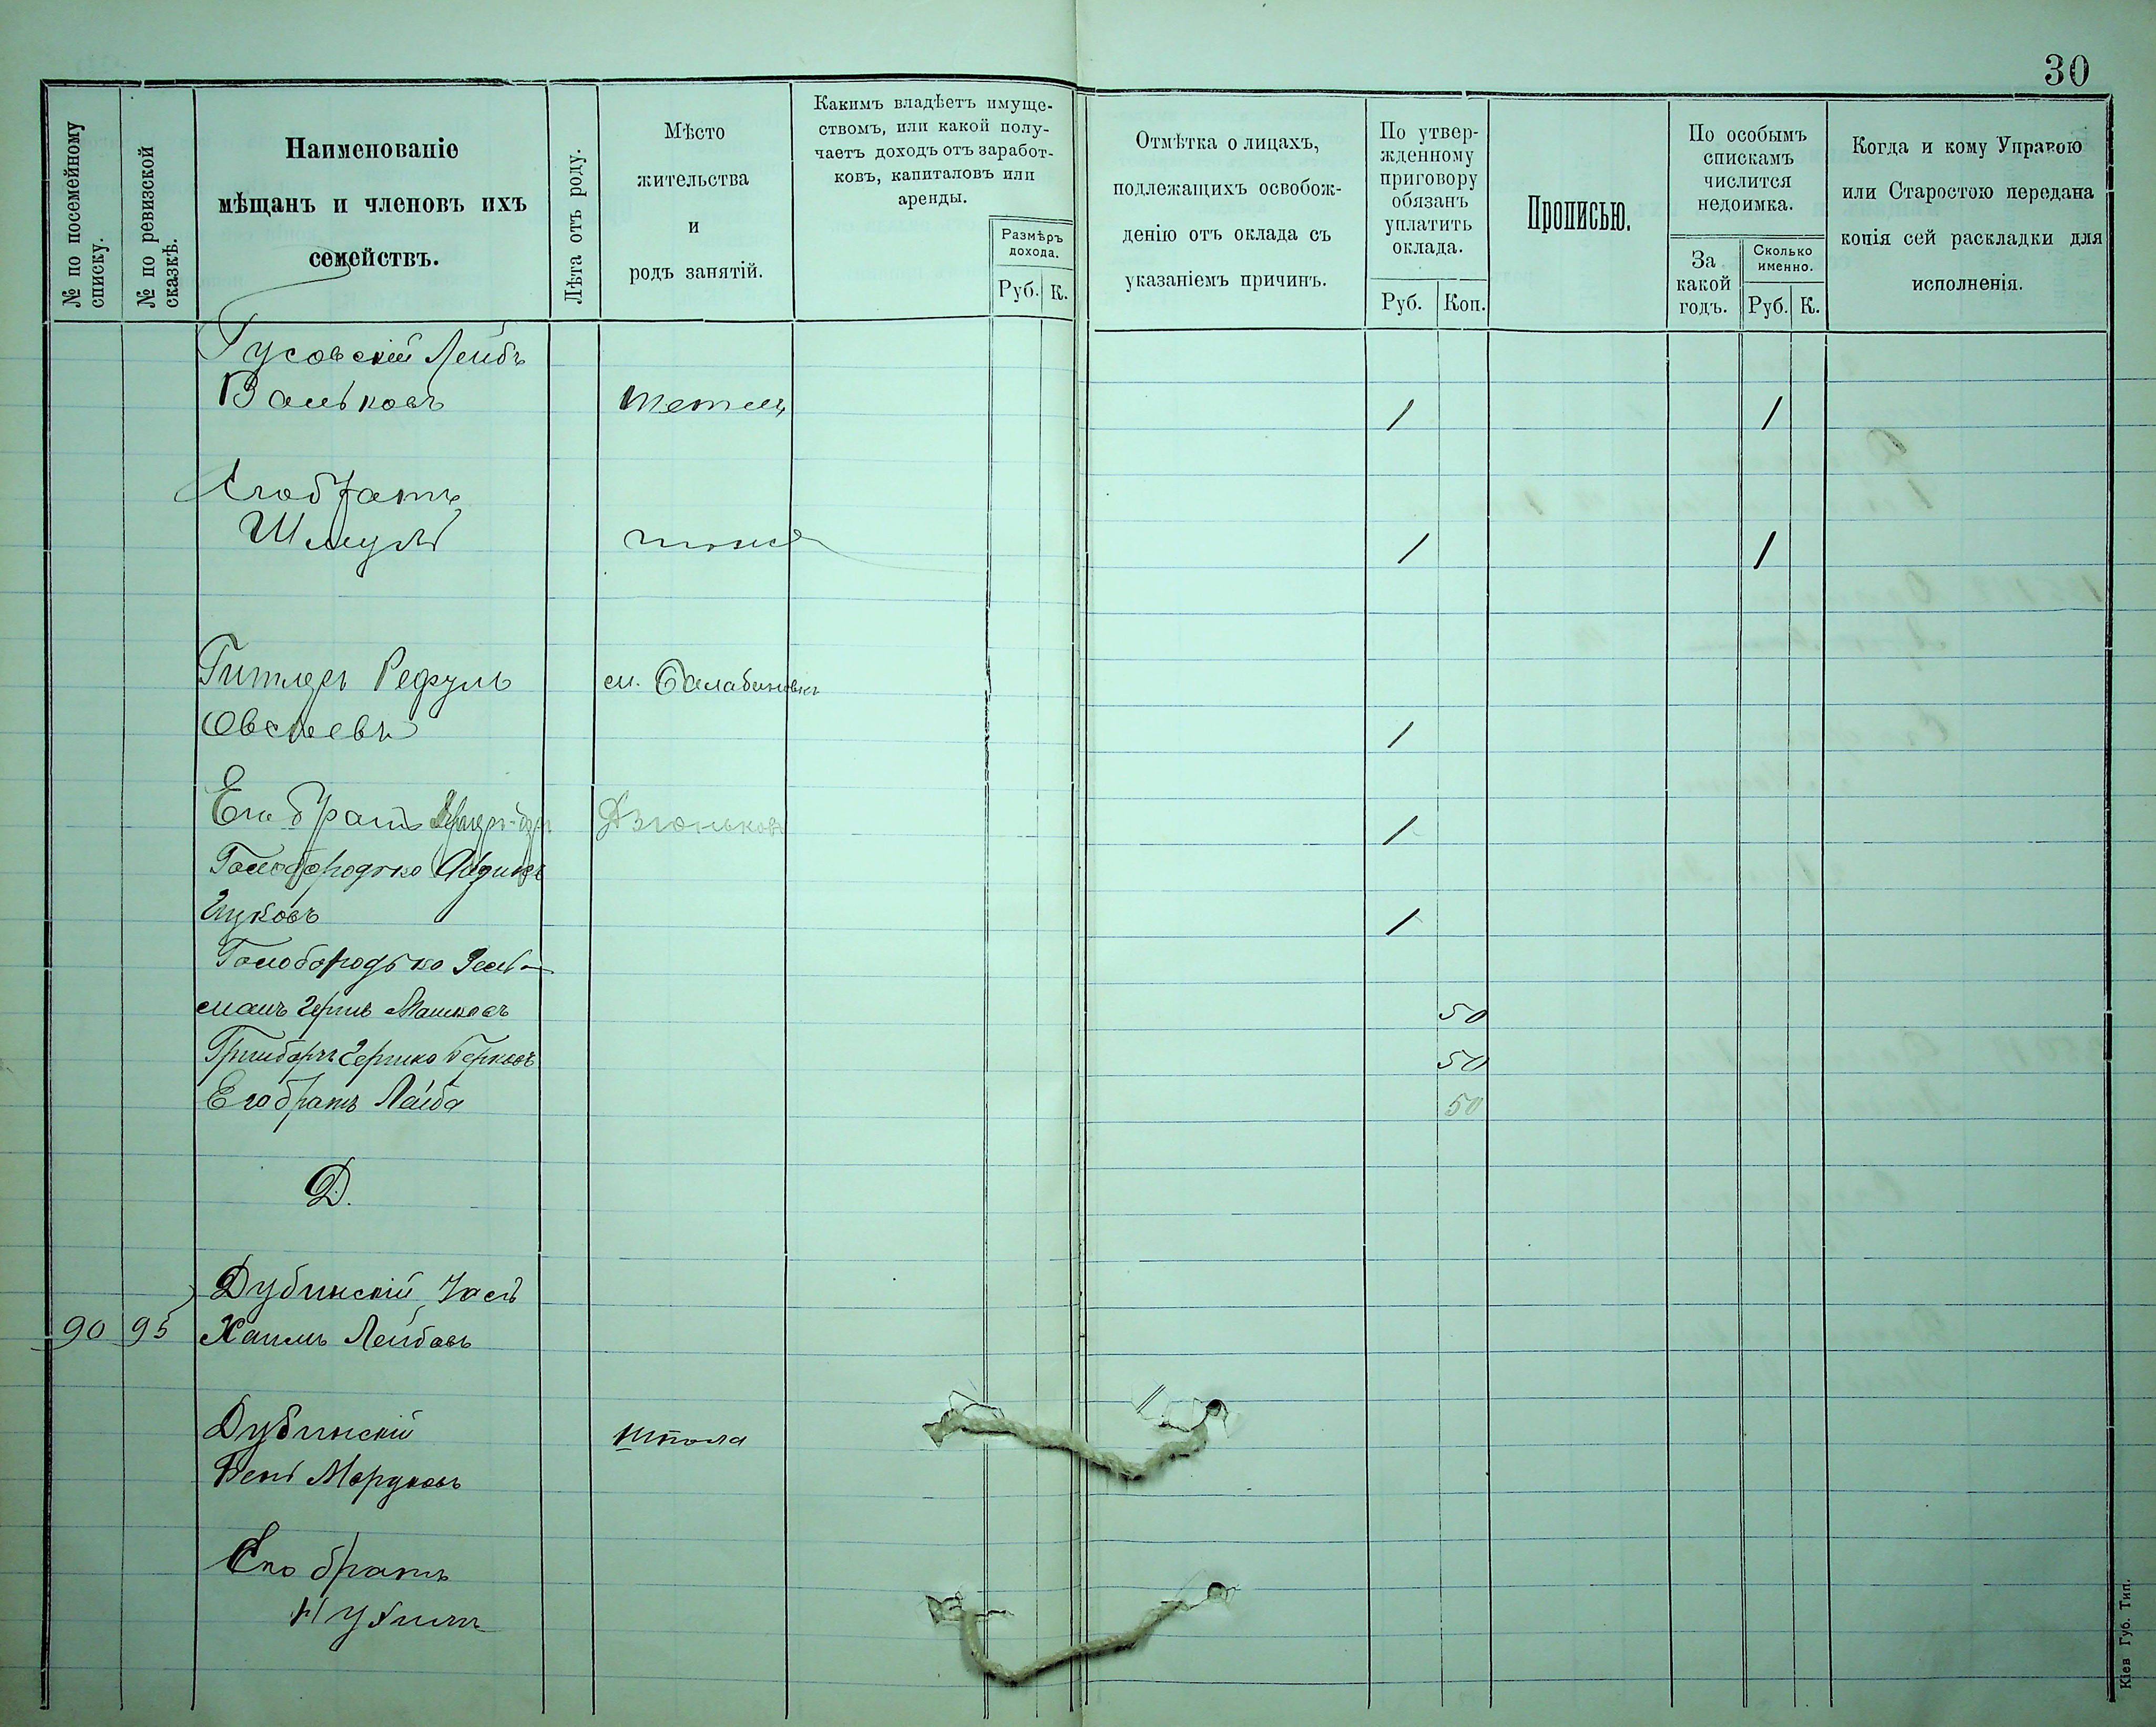 30
№ по посемейному
списку.
№ по ревизской
сказкѣ.
Наименованіе
мѣщанъ и членовъ ихъ
семействъ.
Лѣта отъ роду.
Мѣсто
жительства
и
родъ занятій.
Какимъ владѣетъ имуще-
ствомъ, или какой полу-
чаетъ доходъ отъ заработ-
ковъ, капиталовъ или
аренды.
Размѣръ
дохода.
Руб. К.
Отмѣтка о лицахъ,
подлежащихъ освобож-
денію отъ оклада съ
указаніемъ причинъ.
По утвер-
жденному
приговору
обязанъ
уплатить
оклада.
Руб. Коп.
Прописью.
По особымъ
спискамъ
числится
недоимка.
За
какой
годъ.
Сколько
именно.
Руб. К.
Когда и кому Управою
или Старостою передана
копія сей раскладки для
исполненія.
Гусовскій Лейбъ
Вольковъ 1 1
Его братъ
Шмуль 1 1
Гитлеръ Рефулъ
Овсѣевъ 1
Его братъ Дзюньковъ 1
Голобородько
Ицковъ 1
Голобородько Зель-
манъ Гершъ Машковъ 50
Гринбергъ Гершко Берковъ 50
Его братъ Лейба 50
Д.
Дубинскій Іось
90 95 Хаимъ Лейбовъ
Дубинскій Шпола
Бень Мордковъ
Его братъ
Нухимъ
Кіев Губ. Тип.